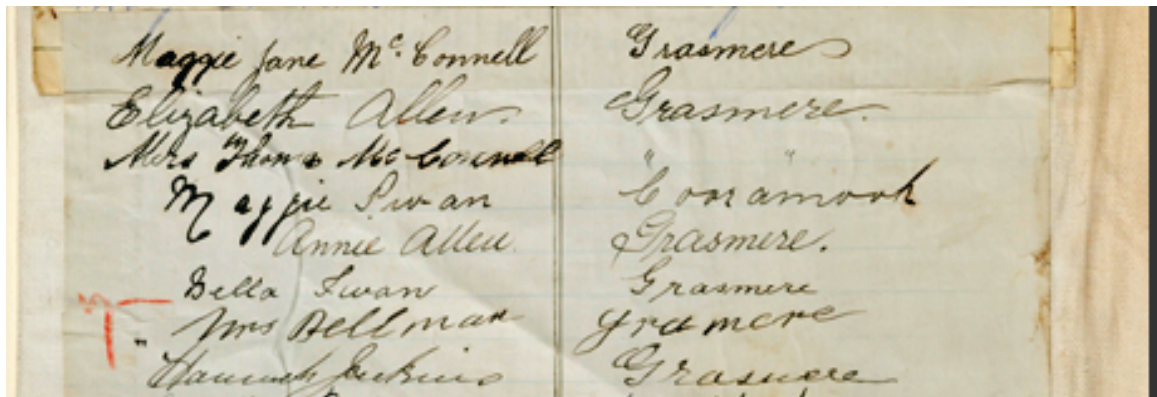 Maggie Jane Mc Connell Grasmere
Elizabeth Allen. Grasmere.
Mrs Thoms Mc Connell " "
Maggie Swan Cooramook
Annie Allen. Grasmere.
Bella Swan Grasmere
" Mrs Bellman Gramere
Hannah Jenkins Grasmere